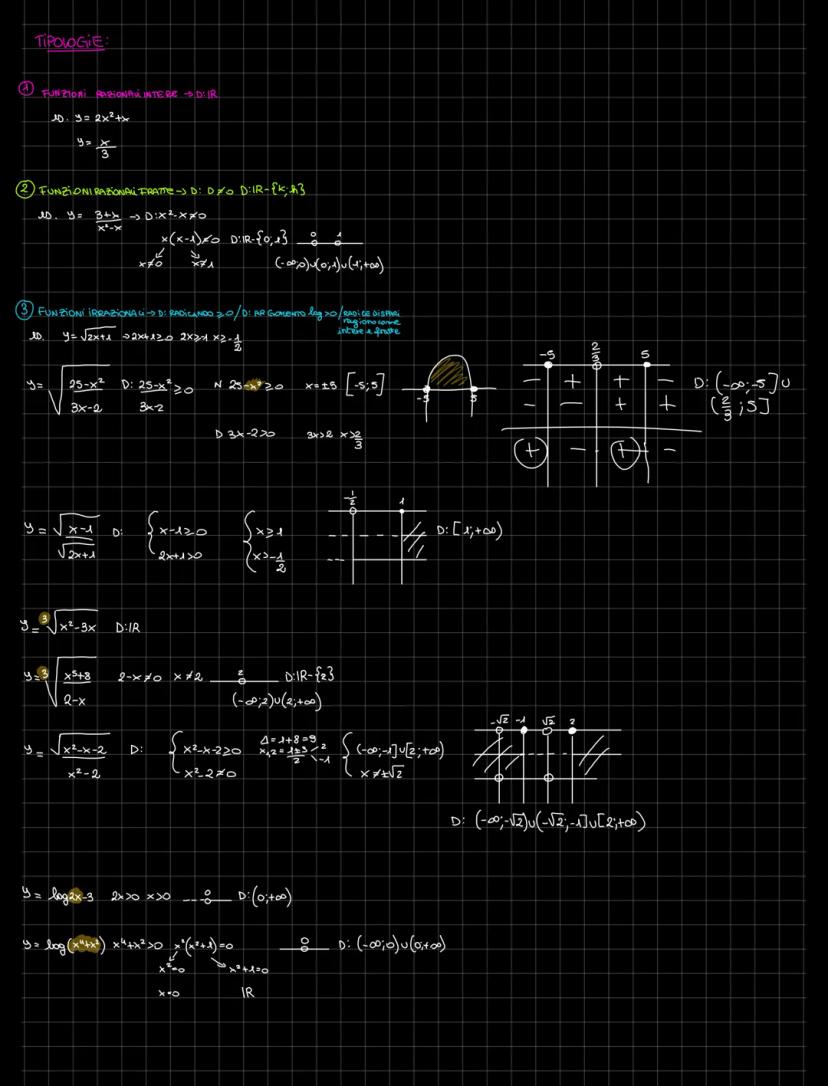 TIPOLOGIE:
① FUNZIONI RAZIONALI INTERE → D:ℝ
ES. y = 2x²+x
y = x/3
② FUNZIONI RAZIONALI FRATTE → D: D≠0 D:ℝ-{k;h}
ES. y = (3+x)/(x²-x) → D: x²-x≠0
x(x-1)≠0 D:ℝ-{0;1} 0 1
x≠0 x≠1 (-∞;0)∪(0;1)∪(1;+∞)
③ FUNZIONI IRRAZIONALI → D: RADICANDO ≥0 / D: ARGOMENTO log >0 / RADICE DISPARI
ragiono come
intere e fratte
ES. y = √(2x+1) → 2x+1≥0 2x≥-1 x≥-1/2
y = √((25-x²)/(3x-2)) D: (25-x²)/(3x-2) ≥0 N 25-x²≥0 x=±5 [-5;5] -5 5
D 3x-2>0 3x>2 x>2/3
-5 2/3 5
- + + -
- - + +
+ - + -
D: (-∞;-5]∪
(2/3;5]
y = √(x-1)/√(2x+1) D: { x-1≥0 { x≥1
2x+1>0 x>-1/2
1/2 1 D: [1;+∞)
y = ³√(x²-3x) D:ℝ
y = ³√((x⁵+8)/(2-x)) 2-x≠0 x≠2 2 D:ℝ-{2}
(-∞;2)∪(2;+∞)
y = √(x²-x-2)/(x²-2) D: { x²-x-2≥0 Δ=1+8=9 x1,2 = (1±3)/2 2 -1 { (-∞;-1]∪[2;+∞)
x²-2≠0 x≠±√2
-√2 -1 √2 2
D: (-∞;-√2)∪(-√2;-1]∪[2;+∞)
y = log2x-3 2x>0 x>0 0 D:(0;+∞)
y = log(x⁴+x²) x⁴+x²>0 x²(x²+1)=0 0 D: (-∞;0)∪(0;+∞)
x²=0 x²+1=0
x=0 ℝ